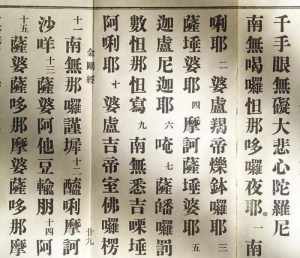 千手眼無礙大悲心陀羅尼
南無喝囉怛那哆囉夜耶 一 南
唎耶 二 婆盧羯帝爍鉢囉耶 三
薩埵婆耶 四 摩訶薩埵婆耶 五
迦盧尼迦耶 六 唵 七 薩皤囉罰
數怛那怛寫 九 南無悉吉㗚埵
阿唎耶 十 婆盧吉帝室佛囉楞
金剛經 廿九
十一 南無那囉謹墀 十二 醯唎摩訶
沙咩 十三 薩婆阿他豆輸朋 十四 阿
十五 薩婆薩哆那摩婆薩哆那摩